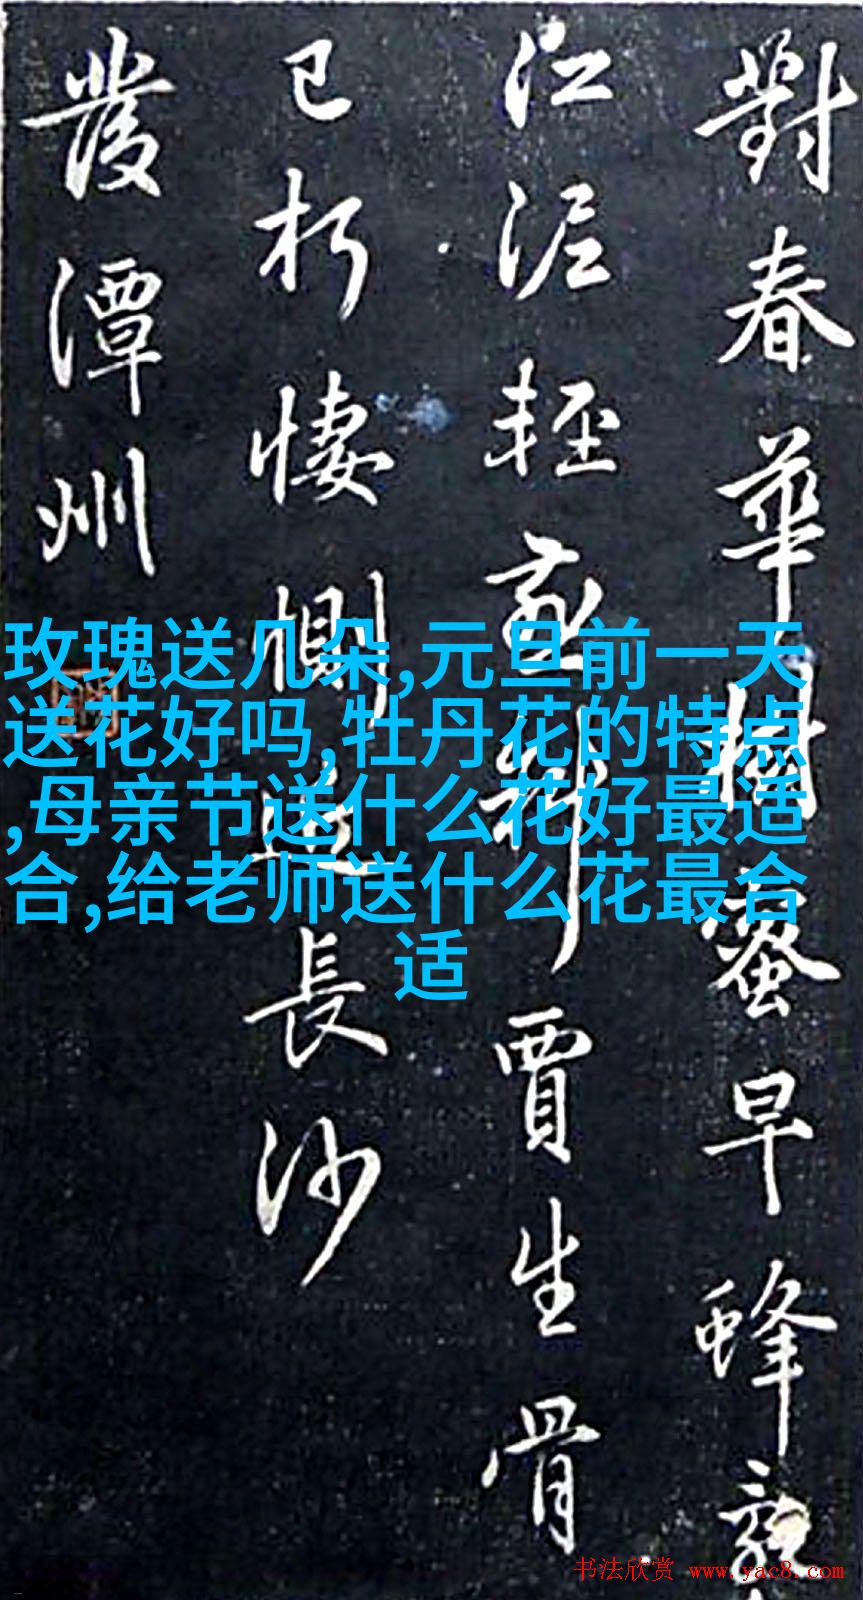 對春華樹蜜早蜂
江泥輕燕斜賈生骨
已朽悽惻近長沙
發潭州
玫瑰送几朵,元旦前一天
送花好吗,牡丹花的特点
,母亲节送什么花好最适
合,给老师送什么花最合
适
书法欣赏 www.yac8.com